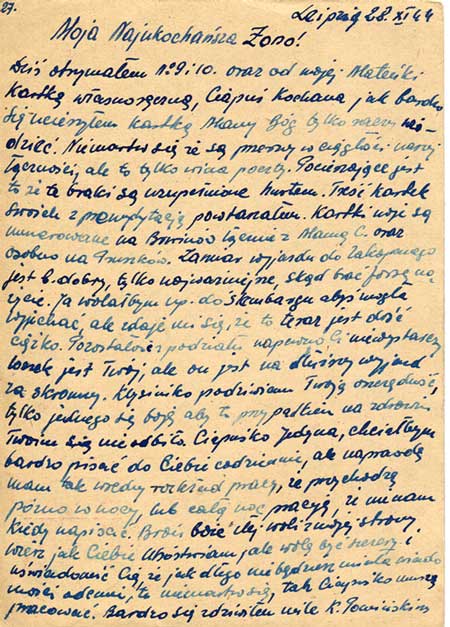 27.
Leipzig 28.XI 44
Moja Najukochańsza Żono!
Dziś otrzymałem No 9 i 10. oraz od mojej Mateńki
Kartkę własnoręczną, Ciapuś Kochana jak bardzo
się ucieszyłem kartką Mamy Bóg tylko raczy
dzieć. Niemartw się że są przerwy w ciągłości naszej
łączności, ale to tylko wina poczty. Pocieszające jest
to że te braki są uzupełnione hurtem. Treść kartek
Twoich z powtarzałem. Kartki moje są
numerowane na Brwinów łącznie z Mamą C. oraz
osobno na Pruszków. Zamiar wyjazdu do Zakopanego
jest b. dobry, tylko najważniejsze, skąd brać forsę na
życie. Ja wolałbym np. do abyś mogła
wyjechać, ale zdaje mi się, że to teraz jest dość
ciężko. Pozostałość z podziału napewno Ci niewystarczy
worek jest Twój, ale on jest na dłuższy wyjazd
za skromny. podziwiam Twoją oszczędność,
tylko jednego się boję aby to przypadkiem na zdrowiu
Twoim się nie odbiło. Ciapuśko Jedyna, chciałbym
bardzo pisać do Ciebie codziennie, ale naprawdę
mam tak wredny rozkład pracy, że przychodzę
późno w nocy, lub całą noc pracuję, że niemam
kiedy napisać. Broń Boże złej woli z mojej strony.
wiesz jak Ciebie ale wolę być szczery i
uświadomić Cię że jak długo nie będziesz miała
mości odemnie, to niemartw się, tak Ciapuśko muszę
pracować. Bardzo się zdziwiłem mile K.